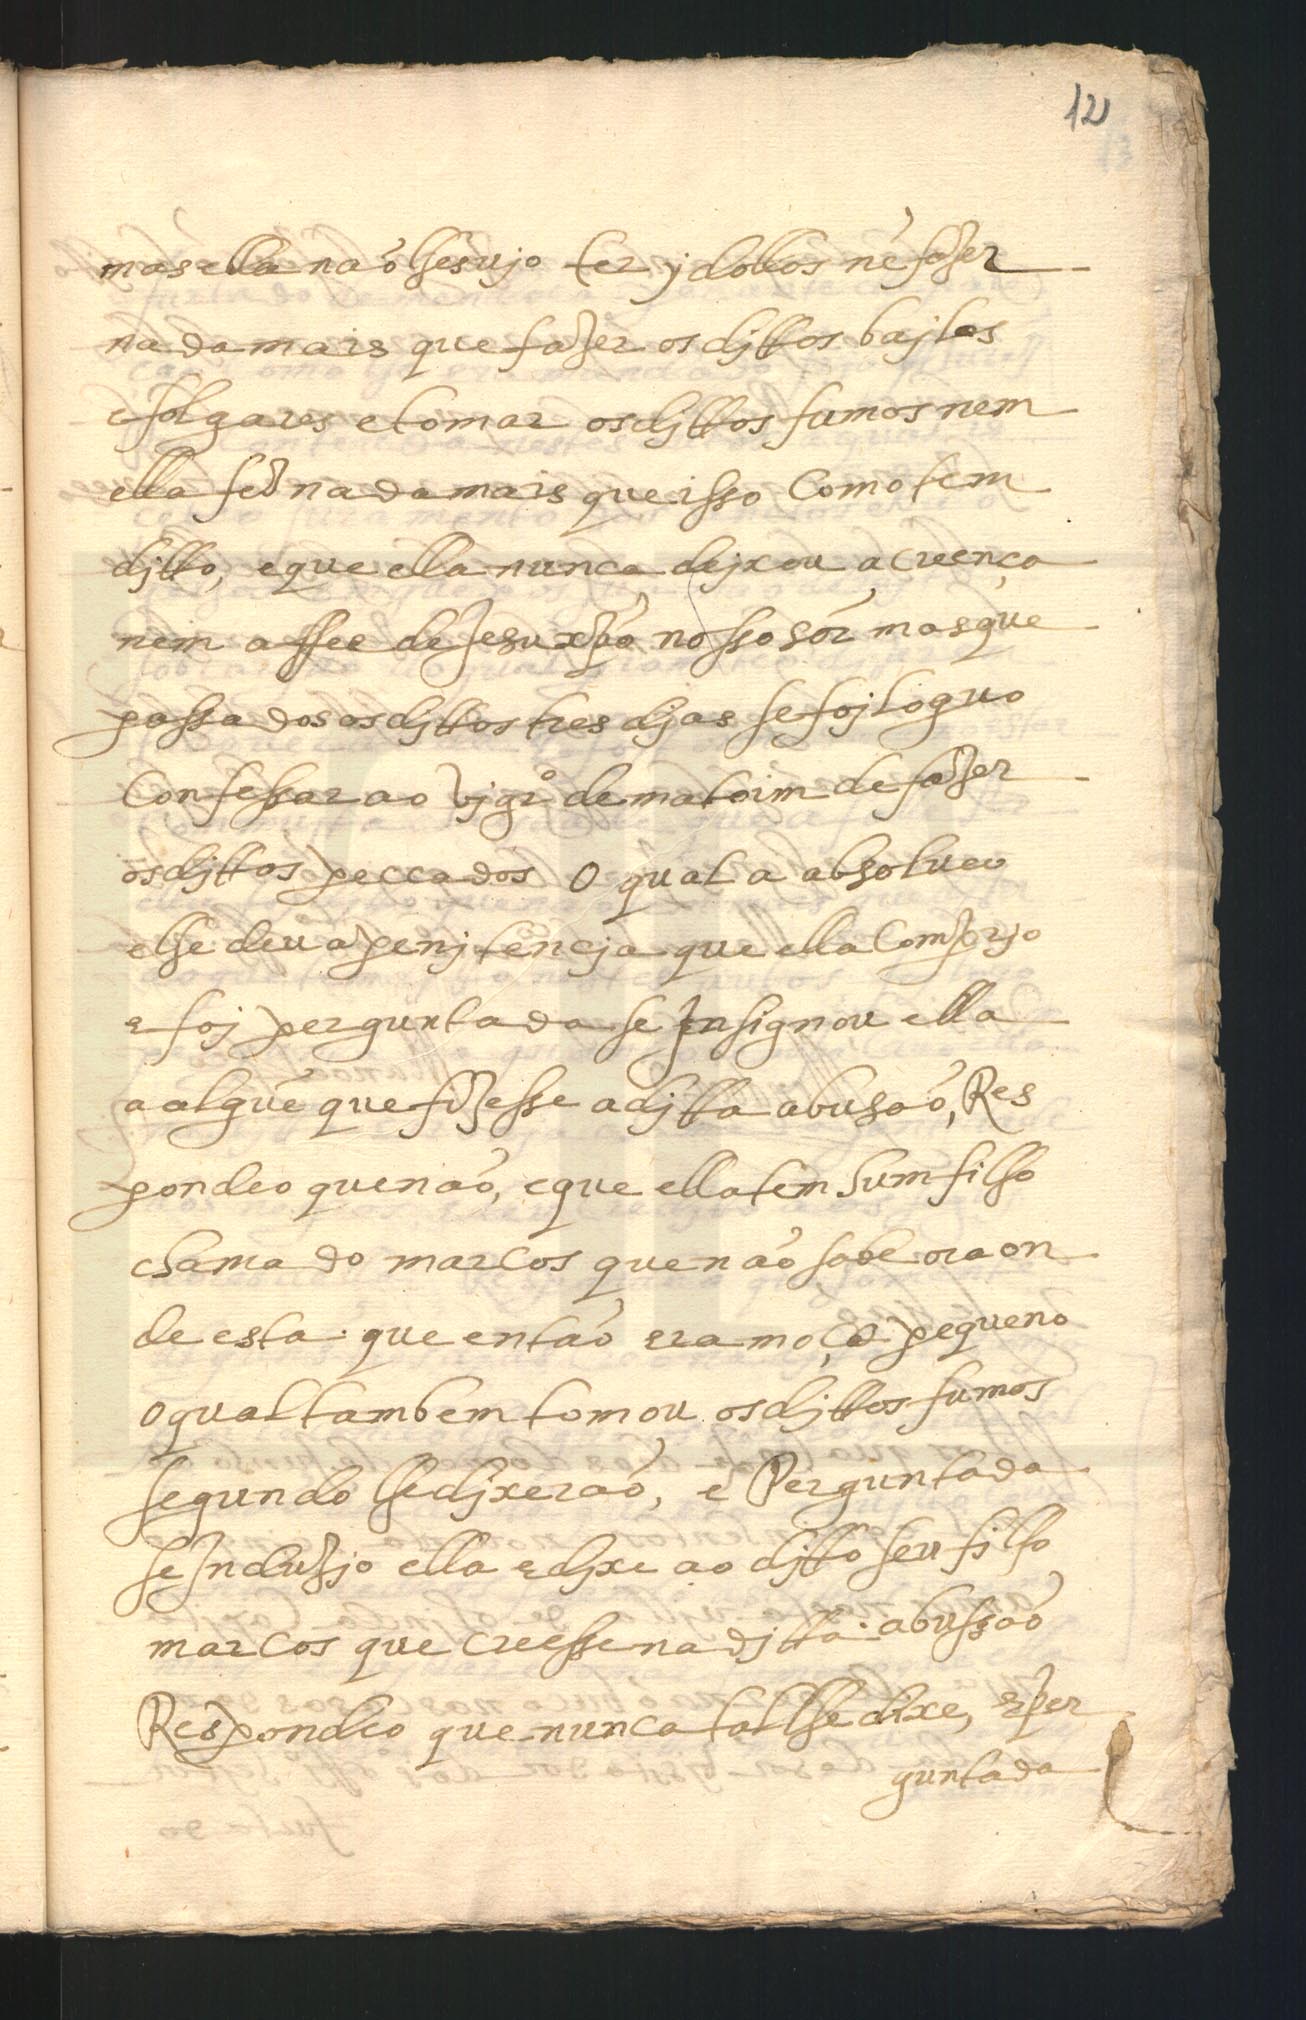 12
13
mas ella não lhes vjo ter jdollos nẽ fazer
nada mais que fazer os djttos bajlos
e folgares e tomar os djttos fumos nem
ella fez nada mais que isso Como tem
djtto, e que ella nunca dejxou a creença
nem a ffee de Jesu xpõ nosso sõr mas que
passados os djttos tres djas se foj loguo
Confessar ao vjgrº de matoim de fazer
os djttos peccados O qual a absolueo
e lhe deu a penjtencja que ella Comprjo
e foj perguntada se Jnsignou ella
a alguẽ que fizesse a djtta abusaõ, Res
pondeo que não, e que ella tem hum filho
chamado marcos que não sabe ora on
de esta que então era moço pequeno
o qual tambem tomou os djttos fumos
segundo lhe djxeraõ, e Perguntada
se Jnduzjo ella e djxe ao djtto seu filho
marcos que creesse na djtta abussaõ
Respondeo que nunca tal lhe dixe, e per
guntada